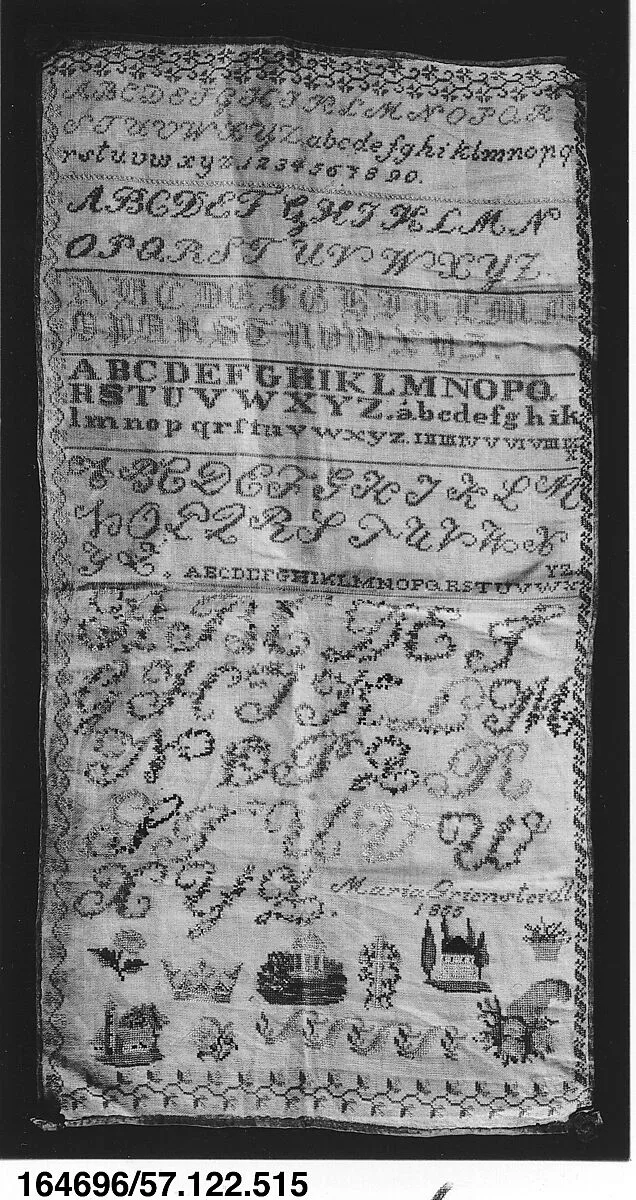 ABCDEFGHIKLMNOPQR
STUVWXYZabcdefghiklmnopq
rstuvwxyz1234567890.
ABCDEFGHIKLMN
OPQRSTUVWXYZ.
ABCDEFGHIKLMN
OPQRSTUVWXYZ.
ABCDEFGHIKLMNOPQ
RSTUVWXYZ.abcdefghik
lmnopqrſtuvwxyz.
ABCDEFGHIKLM
NOPQRSTUVWX
YZ. ABCDEFGHIKLMNOPQRSTUVWX
YZ.
ABCDEF
GHIKLM
NOPQR
STUVW
XYZ.
Maria
164696/57.122.515